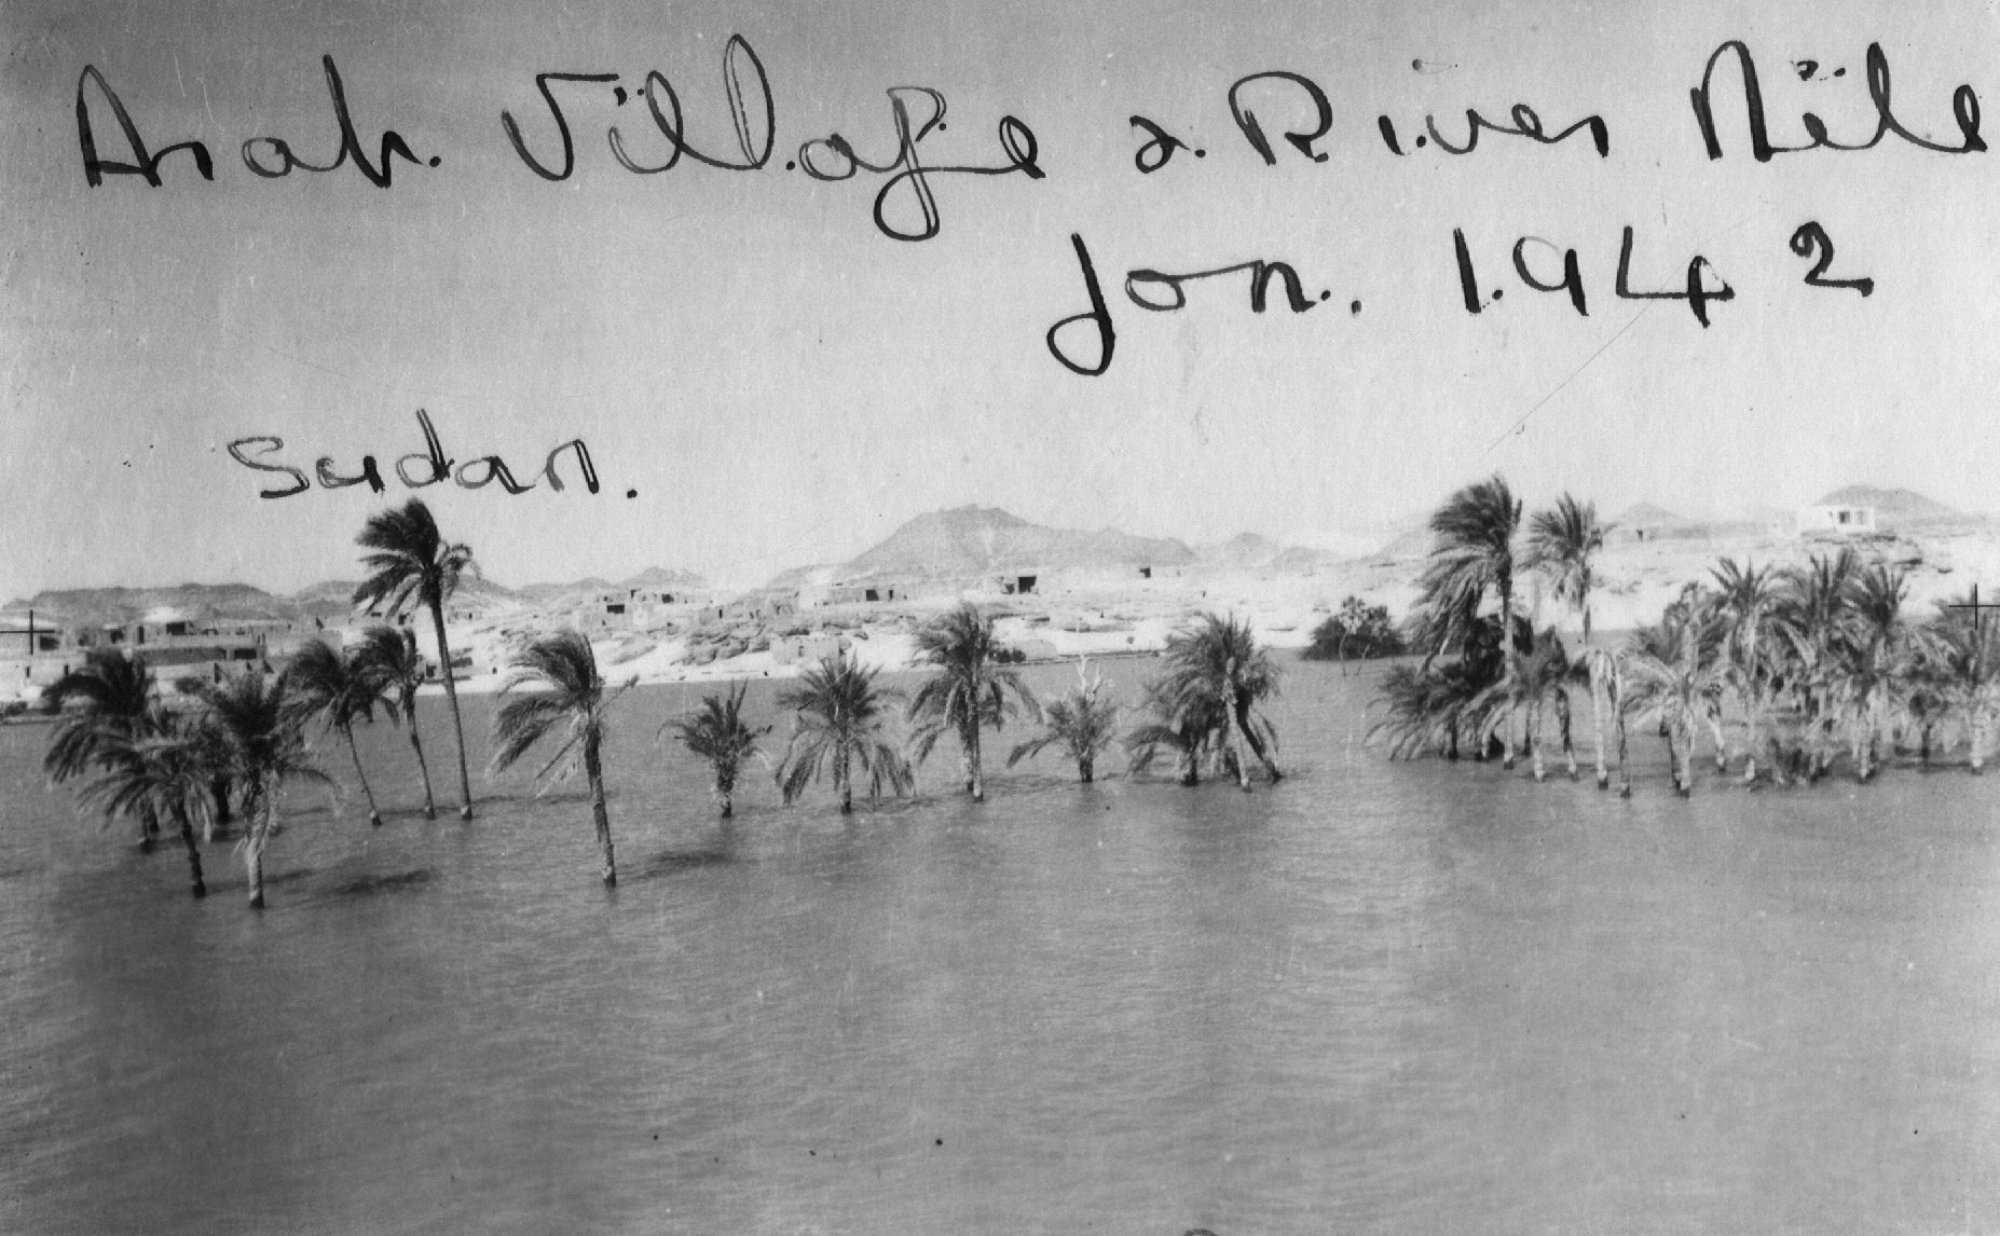 Arab. Village & River Nile
Jan. 1942
Sudan.